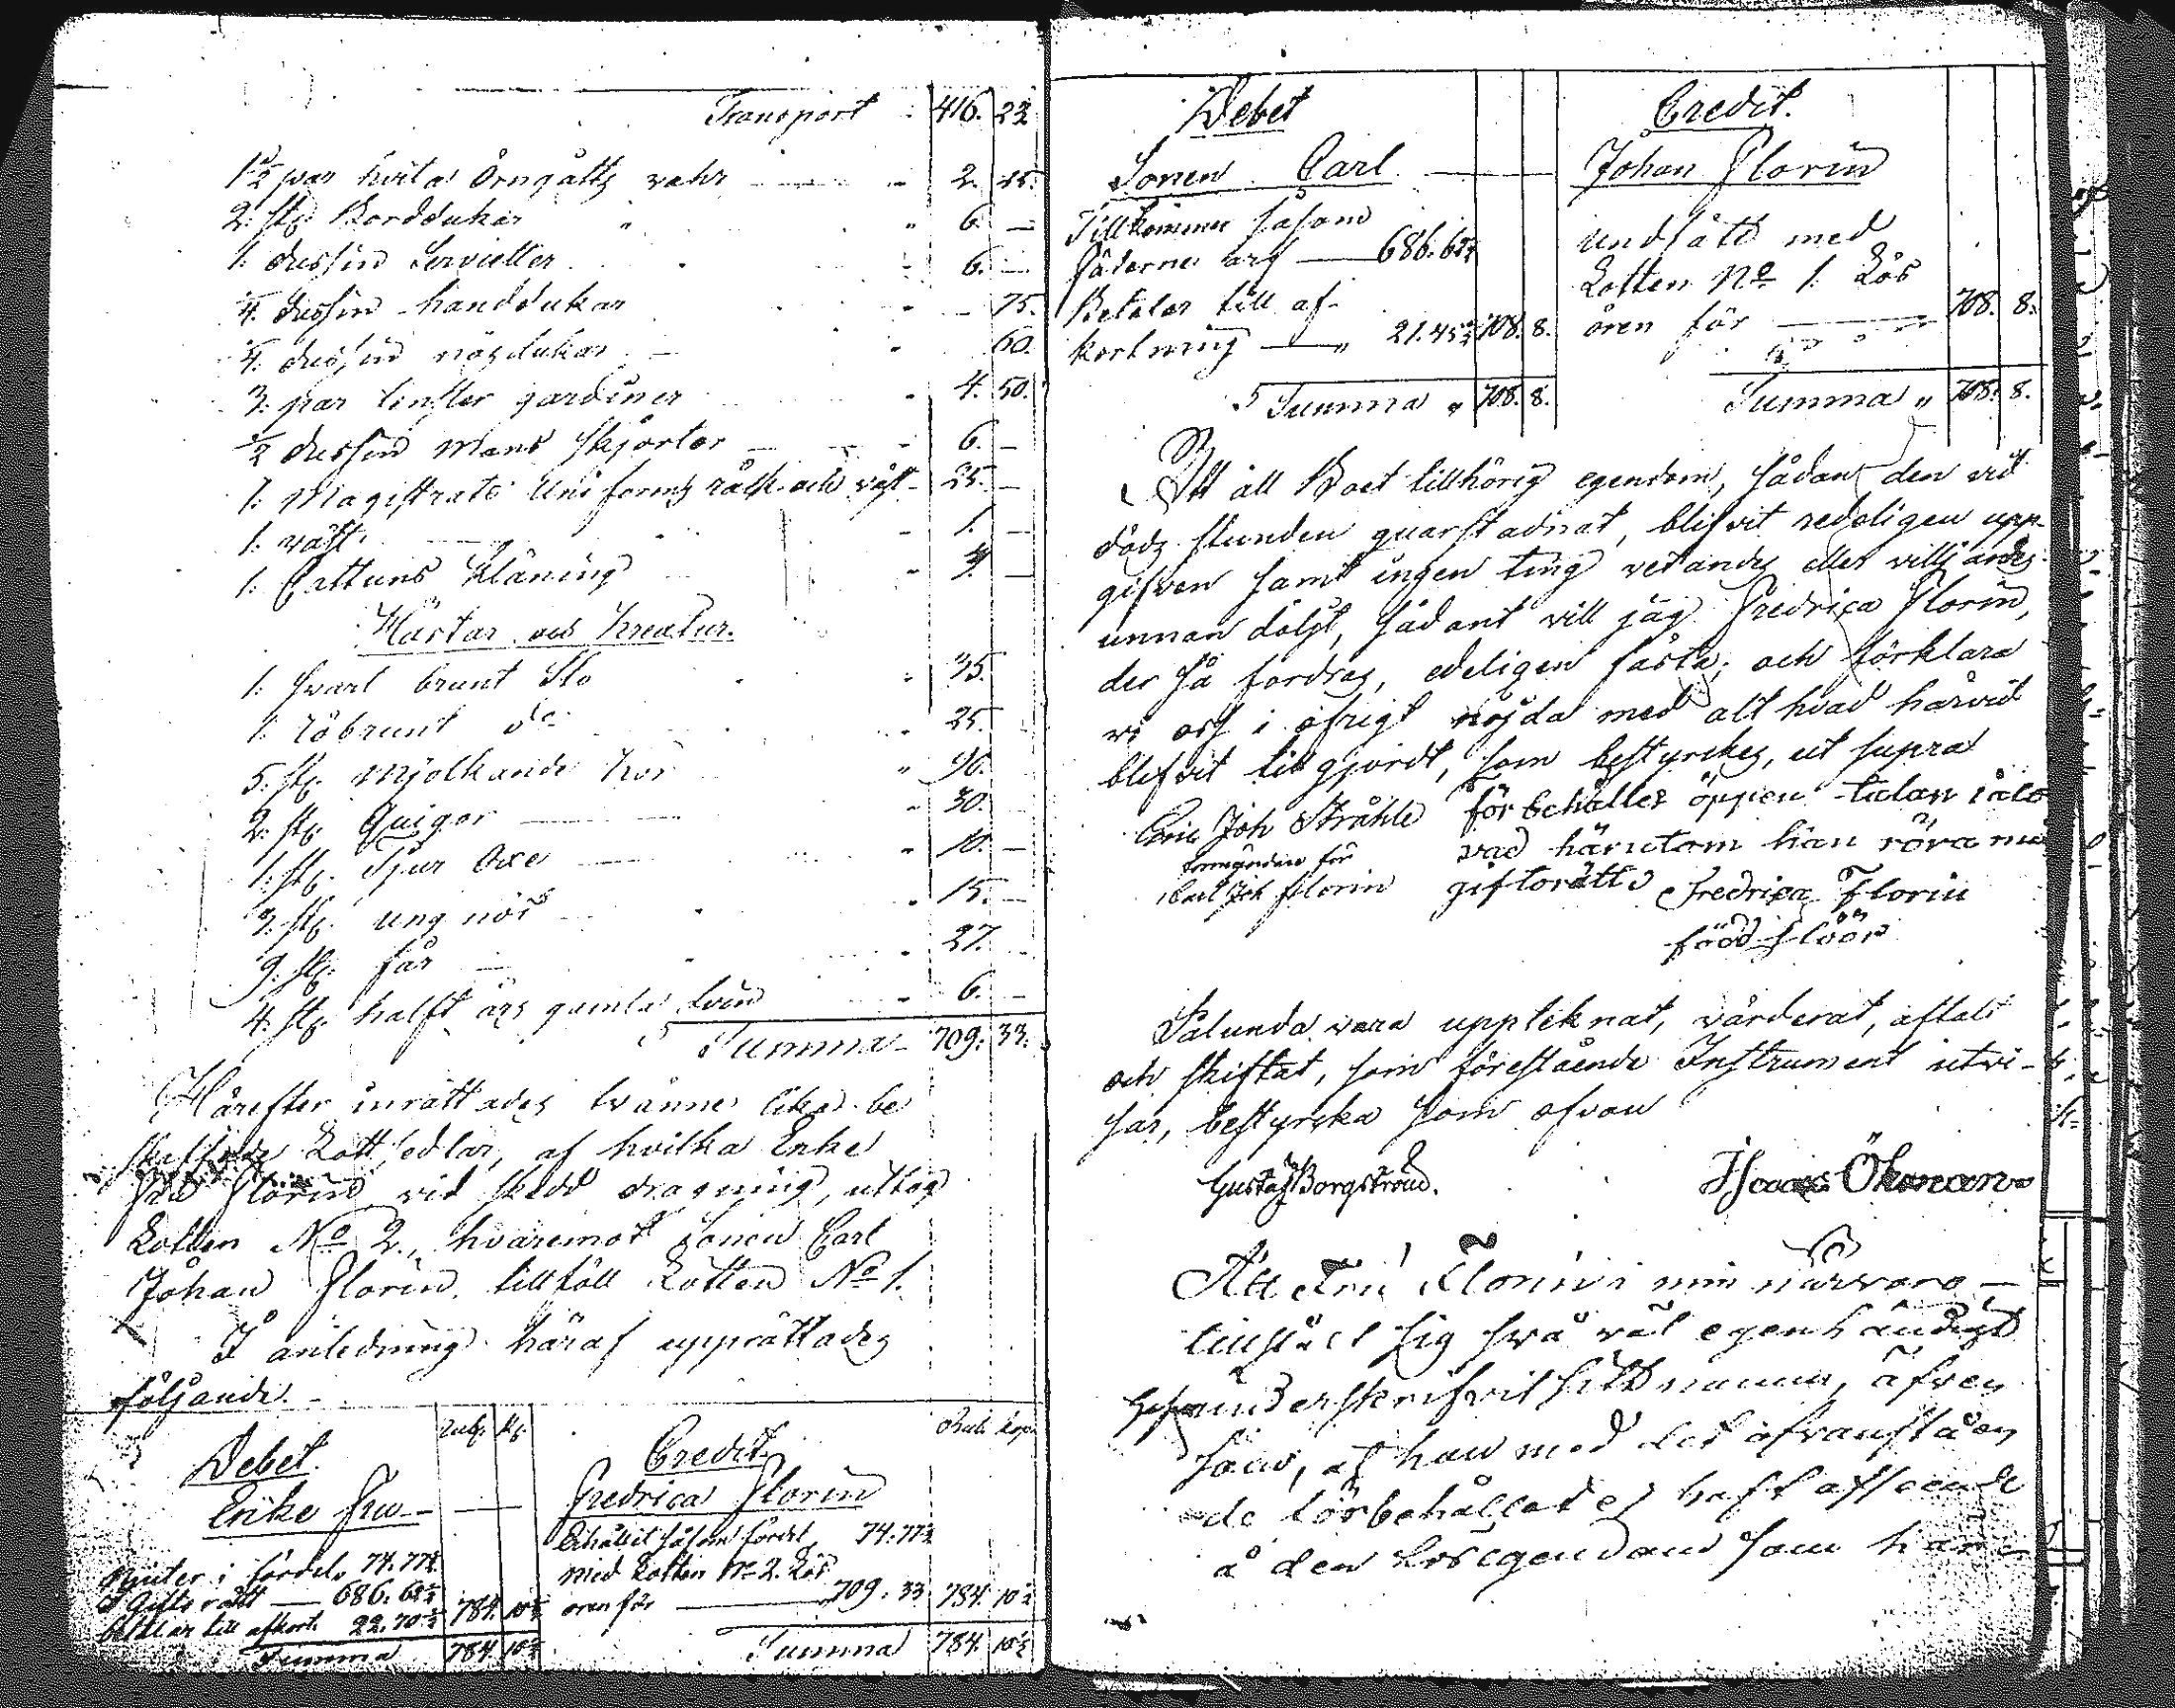 Transport 416. 23.
1½ par hvita Örngåtts vahr 2. 25.
2. st. Borddukar 6. —
1. dussin Servietter 6. —
¼ dussin handdukar — 75.
¼ dussin näsdukar 60.
3. par fenster gardiner 4. 50.
½ dussin Mans Skjortor 6. —
1. Magistrats Uniforms råck och väst 25. —
1. väst 1. —
1. Cattuns Klåning 4. —
Hästar och Kreatur.
1. svart brunt Sto 35.
1. röbrunt do 25.
5. st. Mjölkande kor 90.
2. st. Quigor 30.
1. st. Tjur Oxe 10. —
3. st. ung nöt 15. —
9. st. får 27.
4. st. halft års gamla svin 6. —
Summa 709. 33.
Härefter inrättades tvänne lika be
skaffade Lottsedlar, af hvilka Enke
Fru Florin vid skedd dragning, uttog
Lotten No 2., hvaremot sonen Carl
Johan Florin tillföll Lotten No 1.
I anledning häraf upprättades
följande.
Debet. Rub. k. Credit. Rub. kop.
Enke Fru Fredrica Florin
Njuter i fördel 74. 77½ Erhållit såsom fördel 74. 77½
I giftorätt 686. 62½ med Lotten No 2. Lös
betalar till afkort. 22. 70½ 784. 10½ ören för 709. 33 784. 10½
Summa 784. 10½ Summa 784. 10½
Debet Credit.
Sonen Carl Johan Florin
Tillkommer såsom undfått med
fäderne arf 686. 62½ Lotten No 1. Lös
Betalar till af- ören för 708. 8.
kortning 21. 45½ 708. 8.
Summa 708. 8. Summa 708. 8.
Att all Boet tillhörig egendom, sådan den vid
döds stunden quarstadnat, blifvit redeligen upp-
gifven samt ingen ting vetandes eller villjandes
unnan döljt, sådant vill jag Fredrica Florin,
der så fordras, edeligen fästa; och förklara
vi oss i öfrigt nöjda med alt hvad härvid
blifvit tillgjordt, som bestyrkes, ut supra
Eric Joh Stråhle förbehålles öppen talan i alt
Förmyndare för vad härutom kan röra min
Carl Joh Florin giftorätt Fredrica Florin
född Flöör
Sålunda vara uppteknat, värderat, aftalt
och skiftat, som förestående Instrument utvi-
sar, bestyrka som ofvan
Gustaf Borgström. Isaac Ökman
Att Fru Florin i min närvaro
tillstått sig svå väl egenhändigt
underskrifvit sitt namn, äfven
som, at hon med det ofvanståen
de förbehållet ej haft afseende
å den lösegendom som här